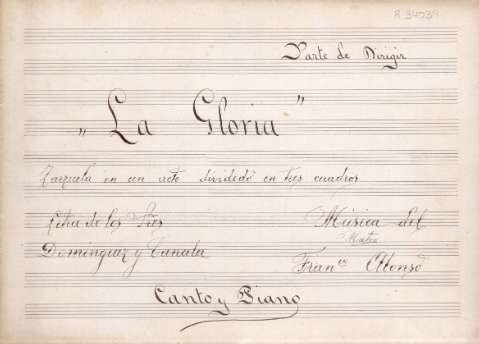 R. 34039
Parte de Dirigir
„La Gloria”
Zarzuela en un acto dividido en tres cuadros
Letra de los Sres
Música del
Mtro
Domínguez y Candla
Franco Alonso
Canto y Piano